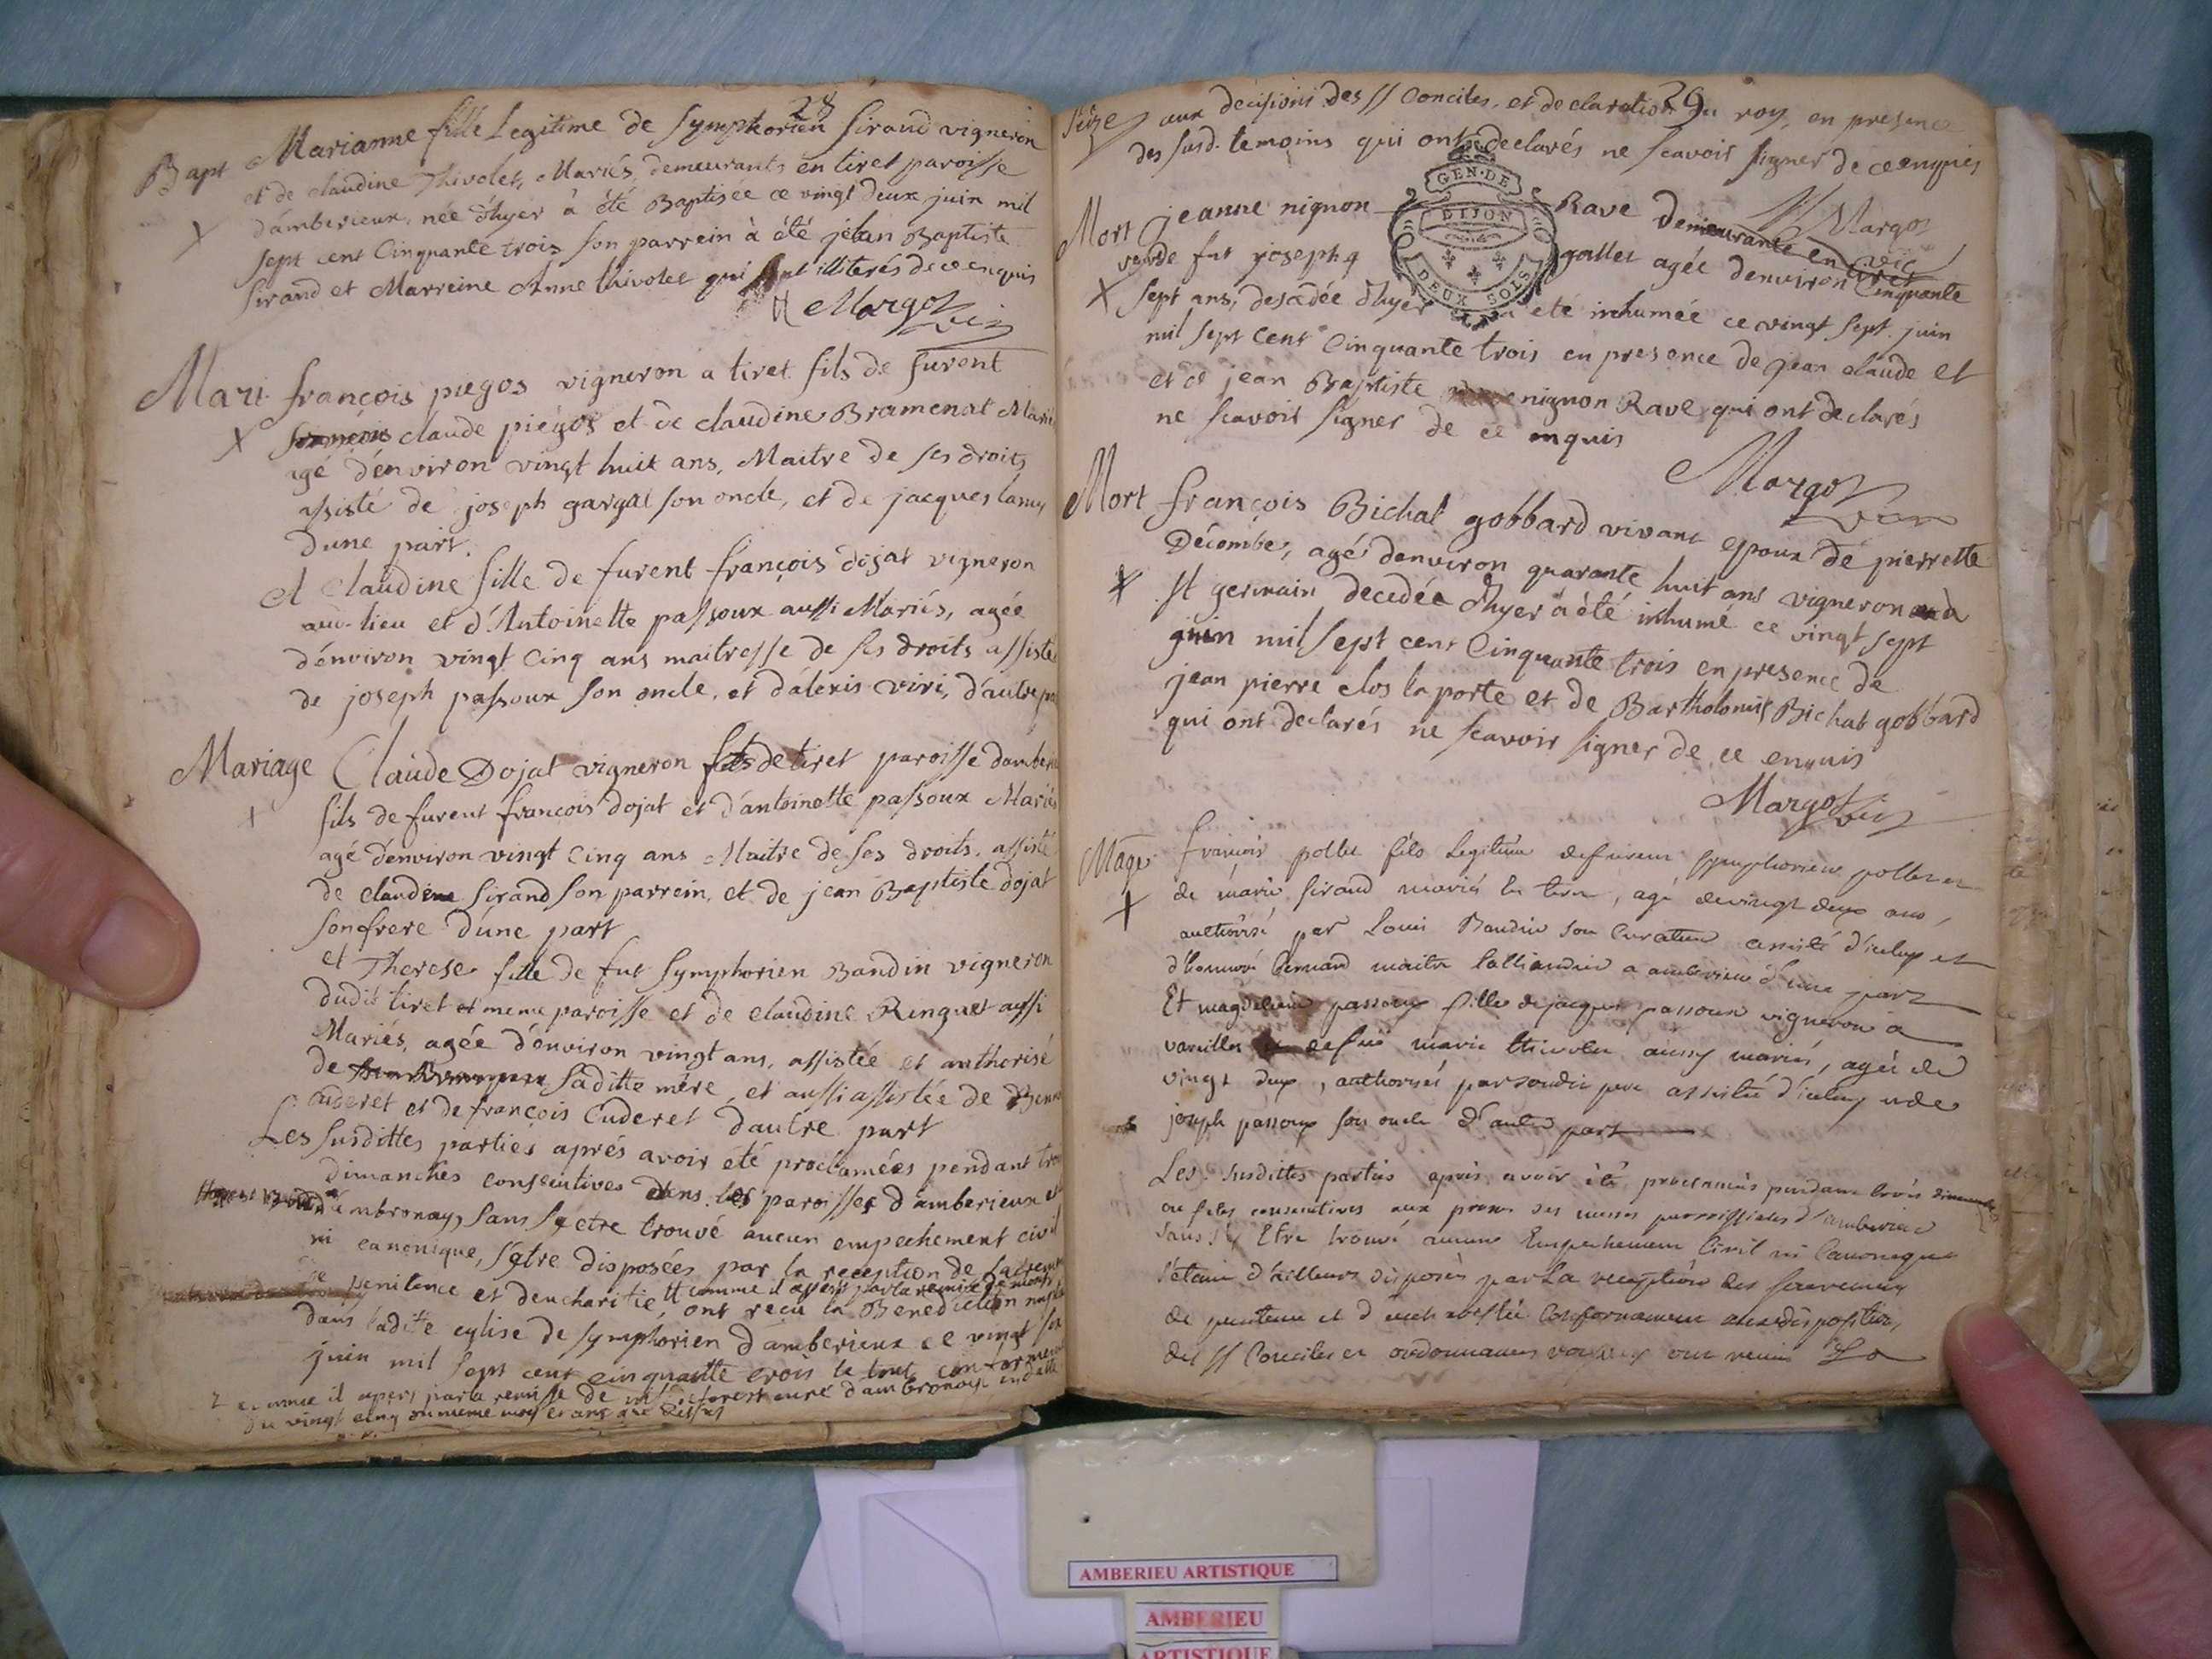 28
Bapt Marianne fille Legitime de Symphorien Sirand vigneron
et de claudine Thivolet, Mariés, demeurants en tiret paroisse
d'amberieux, née d'hyer à été Baptisée ce vingt deux juin mil
sept cent Cinquante trois son parrein à été jean Baptiste
Sirand et Marreine Anne thivolet qui sont illiterés de ce enquis
Margot vic
Mari françois piegos vigneron a tiret fils de furent
claude piégos et de claudine Bramenat Mariés
agé d'environ vingt huit ans, Maitre de ses droits
assisté de joseph gargat son oncle, et de jacques lamy
dune part.
et Claudine fille de furent françois dojat vigneron
aud. lieu et d'Antoinette passoux aussi Mariés, agée
d'environ vingt Cinq ans maitresse de ses droits assistée
de joseph passoux son oncle, et d'alexis viri, d'autre pa
Mariage Claude Dojat vigneron de tiret paroisse damberi
fils de furent francois dojat et d'antoinette passoux Mariés
agé d'environ vingt Cinq ans Maitre de ses droits, assisté
de claude Sirand son parrein, et de jean Baptiste dojat
son frere d'une part
et Therese fille de fut Symphorien Baudin vigneron
dudit tiret et meme paroisse et de claudine Ringuet aussi
Mariés, agée d'environ vingt ans, assistée et authorisé
de saditte mère, et aussi assistée de
Cuderet et de françois Cuderet d'autre part
Les susdittes parties aprés avoir été proclamées pendant tro
dimanches consecutives dans les paroisses d'amberieux et
d'ambronay, sans s'y etre trouvé aucun empechement civil
ni canonique, s'etre disposées par la reception de
de penitence et deucharitie, # comme il apert par la remise
ont reçu la Benediction nuptia
dans ladite eglise de symphorien d'amberieux ce vingt
juin mil sept cent cinquante trois le tout conformement
comme il apers par la remise de curé d'ambronay en datte
du vingt cinq du meme mois et ans que dessus
29
aux decisions des SS Conciles, et declaration du roy, en presence
des susd. temoins qui ont declarés ne scavoir signer de ce enquis
Margot
vic
Mort jeanne nignon Rave demeurante en tiret
veuve fut joseph gallet agée denviron Cinquante
sept ans, decedée d'hyer à été inhumée ce vingt sept juin
mil sept Cent Cinquante trois en presence de jean claude et
et de jean Baptiste nignon Rave qui ont declarés
ne scavoir signer de ce enquis
Margot
vic
GEN·DE
DIJON
DEUX SOLS
Mort françois Bichat gobbard vivant epoux de pierrette
Décombe, agé denviron quarante huit ans vigneron à
St germain decedée d'hyer à été inhumé ce vingt sept
juin mil sept cent Cinquante trois en presence de
jean pierre clos la porte et de Bartholomis Bichat gobbard
qui ont declarés ne scavoir signer de ce enquis
Margot vic
Mage francois pollet fils Legitime de furent Symphorien pollet et
de marie Sirand mariés en tiret, agé de vingt deux ans,
authorisé par Louis Baudin son Curateur assisté d'iceluy et
Bernard maitre a amberieux d'une part
Et magdelaine passoux fille de jacques passoux vigneron a
vareilles et de fue marie thivolet aussy mariés, agée de
vingt deux, authorisée par sondit pere assistée d'iceluy et de
joseph passoux son oncle d'autre part
Les susdittes parties après avoir été proclamées pendant trois dimanches
ou fetes consecutives aux prones des messes parroissiales d'amberieux
sans s'y Etre trouvé aucun Empechement Civil ni Canonique
s'etant d'ailleurs disposées par La reception des sacremens
de penitence et d'eucharistie Conformement aux dispositions
des SS Conciles et ordonnances
AMBERIEU ARTISTIQUE
AMBERIEU
ARTISTIQUE